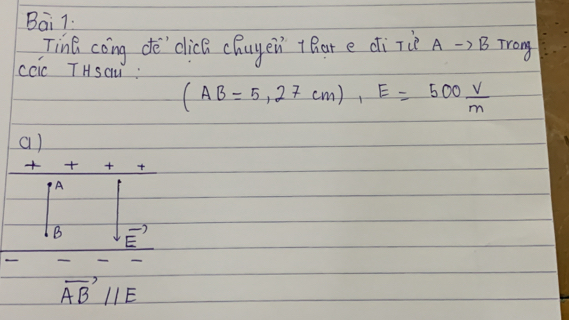 Bài 1:
Tính công để dịch chuyển 1 hạt e đi từ A → B trong
các TH sau:
(AB = 5,27 cm), E = 500 V/m
a)
+ + + +
A
B
E
− − − −
AB // E